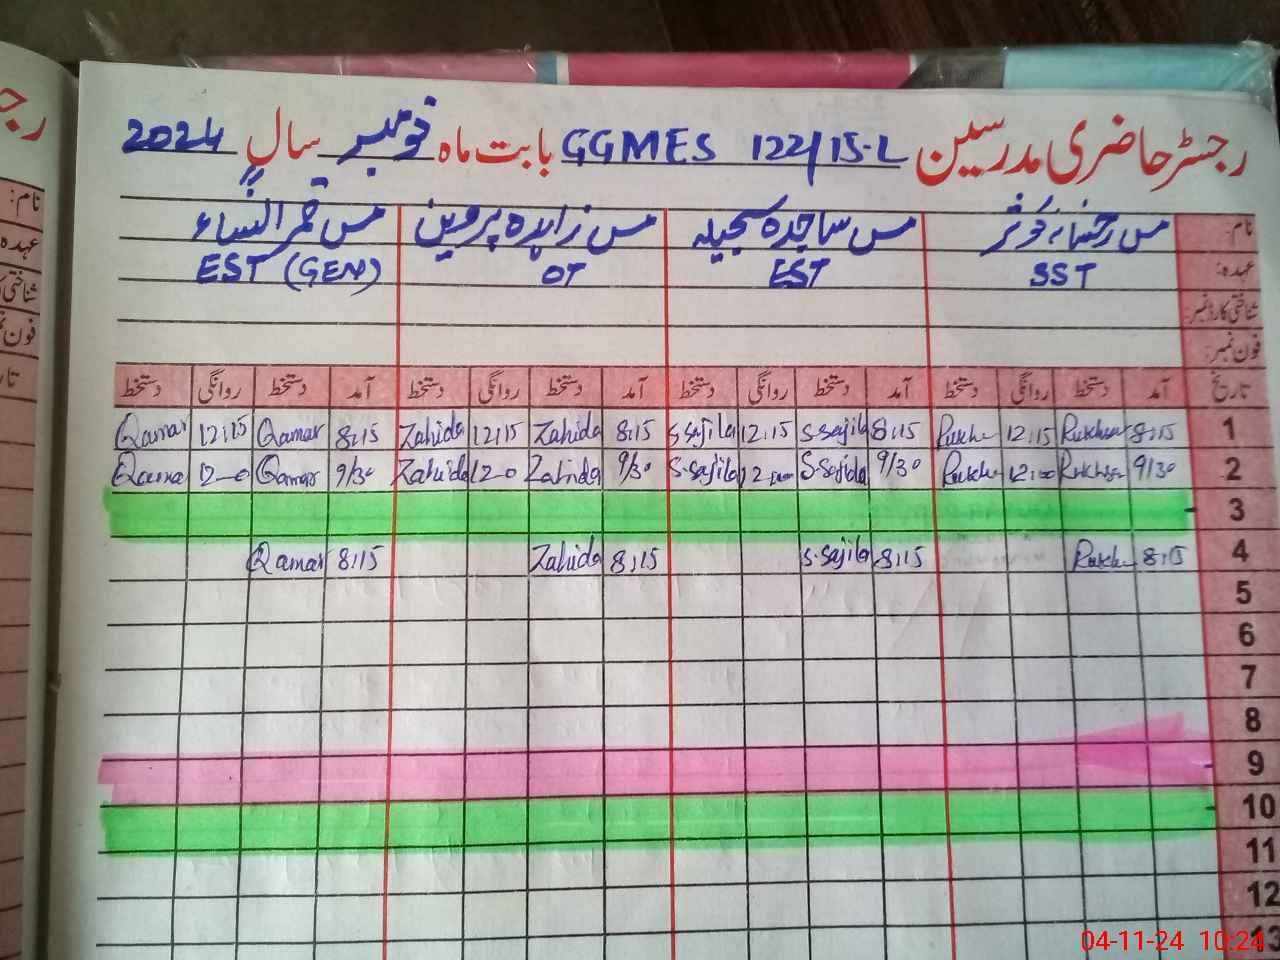 رجسٹر حاضری مدرسین GGMES 122/15-L بابت ماہ نومبر سال 2024
نام: مس رخسانہ کوثر مس ساجدہ سجیلہ مس زاہدہ پروین مس قمر النساء
عہدہ: SST EST OT EST (GEN)
شناختی کارڈ نمبر:
فون نمبر:
تاریخ آمد دستخط روانگی دستخط آمد دستخط روانگی دستخط آمد دستخط روانگی دستخط آمد دستخط روانگی دستخط
1 8:15 Rukhsa 12:15 8:15 S.Sajila 12:15 S.Sajila 8:15 Zahida 12:15 Zahida 8:15 Qamar 12:15 Qamar
2 9/30 12:00 9/30 S.Sajila 12 S.Sajila 9/30 Zahida 12-0 Zahida 9/30 Qamar 12-0 Qamar
3
4 8:15 8:15 S.Sajila 8:15 Zahida 8:15 Qamar
5
6
7
8
9
10
11
12
13
04-11-24 10:24
رج
نام:
عہدہ
شناختی
فون نم
تا